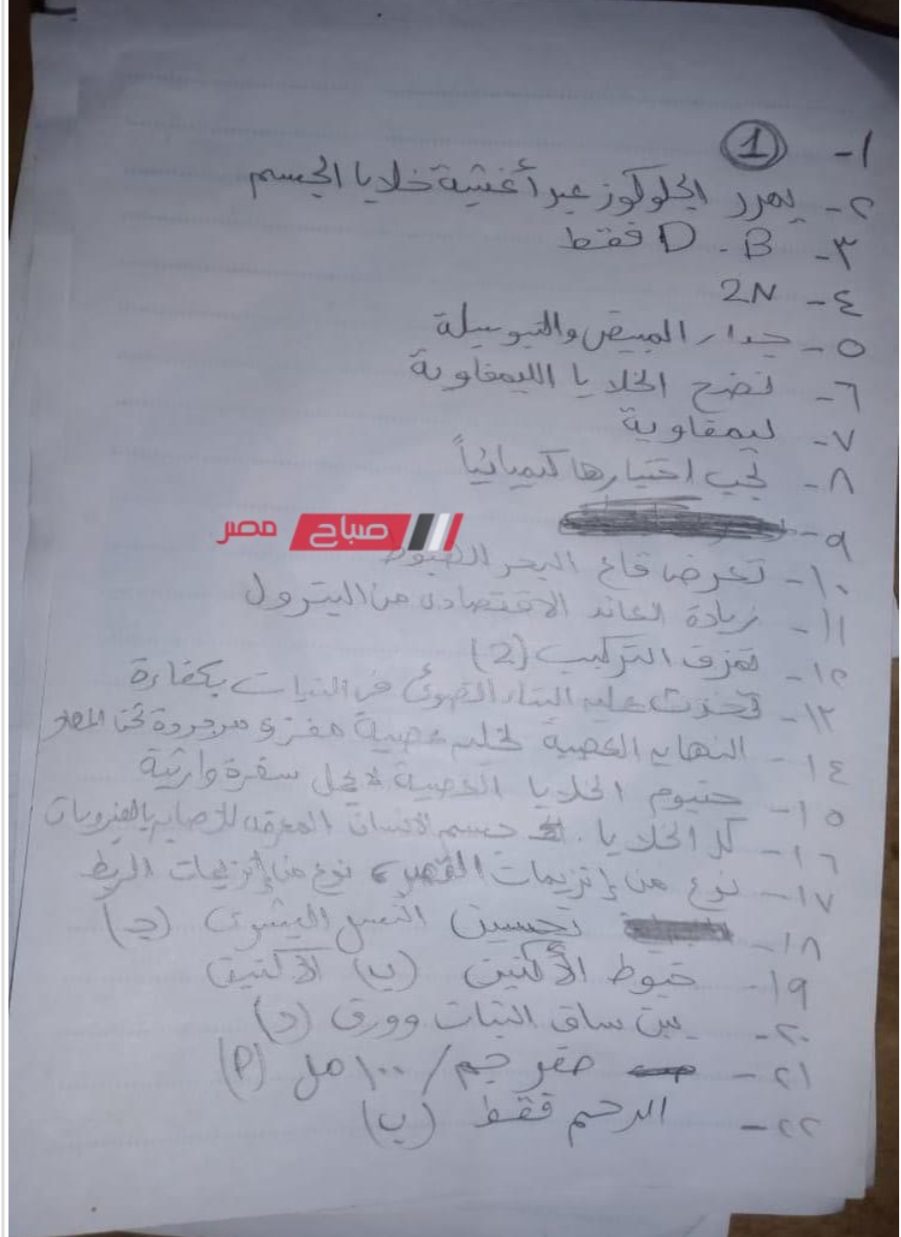 ١- (1)
٢- يمرر الجلوكوز عبر أغشية خلايا الجسم
٣- B - D فقط
٤- 2N
٥- جدار المبيض والنيوسيلة
٦- نضج الخلايا الليمفاوية
٧- ليمفاوية
٨- يجب اختيارها كيميائياً
صباح مصر
٩-
١٠- تعرض قاع البحر للهبوط
١١- زيادة العائد الاقتصادى من البترول
١٢- تمزق التركيب (2)
١٣- تحدث عليه البناء الضوئى فى النبات بكفاءة
١٤- النهايه العصبية لخليه عصبية موجودة تحت
١٥- خلايا سفرة وراثية
١٦- كل الخلايا. جسم الانسان المعرضه للإصابه بالفيروسات
١٧- نوع من إنزيمات القصر، نوع من إنزيمات الربط
١٨- تحسين النسل البشرى (ج)
١٩- خيوط الأكتين (ب) الأكتين
٢٠- بين ساق النبات وورق (د)
٢١- صفر جم / ١٠٠ مل (P)
٢٢- الرحم فقط (ب)